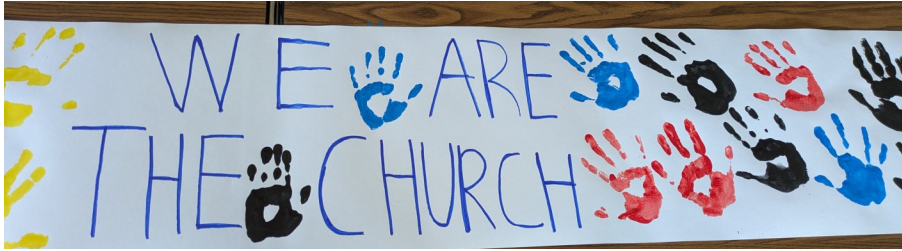 WE ARE
THE CHURCH